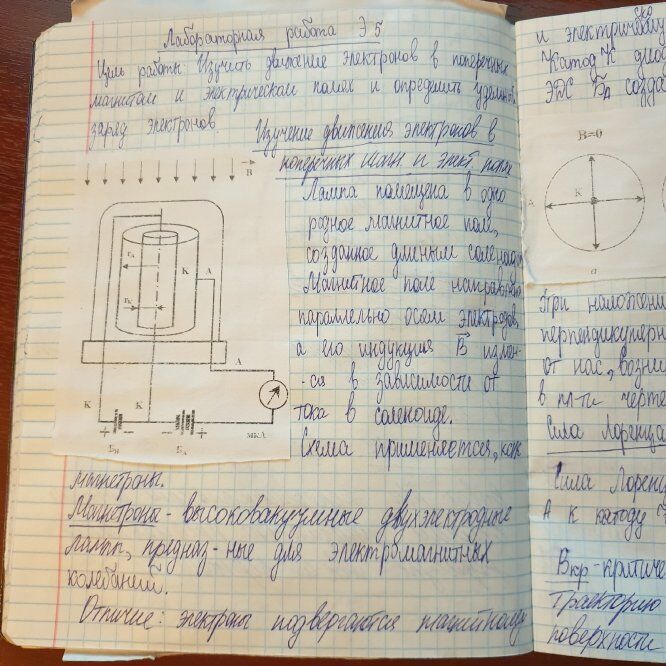 Лабораторная работа Э 5
Цель работы: Изучить движение электронов в поперечных
магнитном и электрическом полях и определить удельный
заряд электронов
Изучение движения электронов в
поперечных магн и элект полях
B
Лампа помещена в одно
родное магнитное поле,
созданное длиным соленоид
Магнитное поле направлено
параллельно осям электродов,
а его индукция B измен-
-ся в зависимости от
тока в соленоиде.
Схема применяется, как
магнетроны.
Магнетроны - высоковакуумные двухэлектродные
лампы, предназ-ные для электромагнитных
колебаний.
Отличие: электроны подвергаются магнитному
rА
K
A
rК
A
K
K
- +
- +
мкА
Б
Б
и электрическ
Катод К
ЭДС БА созда
B=0
A
K
а
При наложени
перпендикулярн
от нас, возни
в пл-ти черте
Сила Лоренца
Сила Лорен
А к катоду
Вкр - критиче
траекторию
поверхности